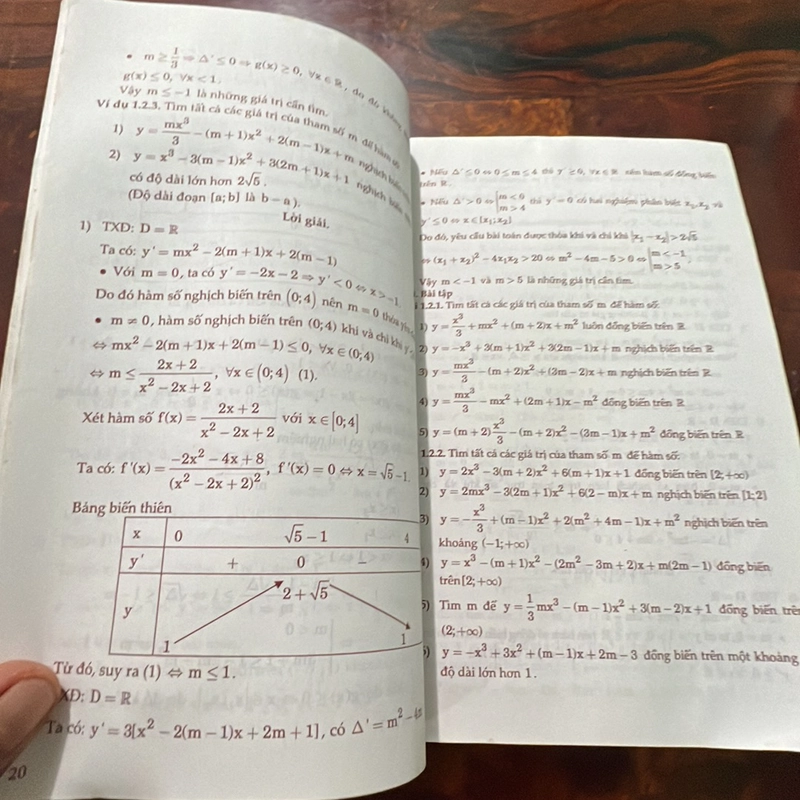 • m ≥ 1/3 ⇒ Δ' ≤ 0 ⇒ g(x) ≥ 0, ∀x ∈ ℝ, do đó không
g(x) ≤ 0, ∀x < 1.
Vậy m ≤ −1 là những giá trị cần tìm.
Ví dụ 1.2.3. Tìm tất cả các giá trị của tham số m để hàm số
1) y = mx³/3 − (m + 1)x² + 2(m − 1)x + m nghịch biến
2) y = x³ − 3(m − 1)x² + 3(2m + 1)x + 1 nghịch biến
có độ dài lớn hơn 2√5.
(Độ dài đoạn [a; b] là b − a).
Lời giải.
1) TXD: D = ℝ
Ta có: y' = mx² − 2(m + 1)x + 2(m − 1)
• Với m = 0, ta có y' = −2x − 2 ⇒ y' < 0 ⇔ x > −1.
Do đó hàm số nghịch biến trên (0; 4) nên m = 0 thỏa
• m ≠ 0, hàm số nghịch biến trên (0; 4) khi và chỉ khi y'
⇔ mx² − 2(m + 1)x + 2(m − 1) ≤ 0, ∀x ∈ (0; 4)
⇔ m ≤ (2x + 2)/(x² − 2x + 2), ∀x ∈ (0; 4) (1).
Xét hàm số f(x) = (2x + 2)/(x² − 2x + 2) với x ∈ [0; 4]
Ta có: f'(x) = (−2x² − 4x + 8)/(x² − 2x + 2)², f'(x) = 0 ⇔ x = √5 − 1.
Bảng biến thiên
x 0 √5 − 1 4
y' + 0 −
2 + √5
y
1 1
Từ đó, suy ra (1) ⇔ m ≤ 1.
XD: D = ℝ
Ta có: y' = 3[x² − 2(m − 1)x + 2m + 1], có Δ' = m² − 4m
20
• Nếu Δ' ≤ 0 ⇔ 0 ≤ m ≤ 4 thì y' ≥ 0, ∀x ∈ ℝ nên hàm số đồng biến
trên ℝ.
• Nếu Δ' > 0 ⇔ [m < 0 m > 4 thì y' = 0 có hai nghiệm phân biệt x₁, x₂ và
y' ≤ 0 ⇔ x ∈ [x₁; x₂]
Do đó, yêu cầu bài toán được thỏa khi và chỉ khi |x₁ − x₂| > 2√5
⇔ (x₁ + x₂)² − 4x₁x₂ > 20 ⇔ m² − 4m − 5 > 0 ⇔ [m < −1 m > 5.
Vậy m < −1 và m > 5 là những giá trị cần tìm.
Bài tập
1.2.1. Tìm tất cả các giá trị của tham số m để hàm số:
1) y = x³/3 + mx² + (m + 2)x + m² luôn đồng biến trên ℝ
2) y = −x³ + 3(m + 1)x² + 3(2m − 1)x + m nghịch biến trên ℝ
3) y = mx³/3 − (m + 2)x² + (3m − 2)x + m nghịch biến trên ℝ
4) y = mx³/3 − mx² + (2m + 1)x − m² đồng biến trên ℝ
5) y = (m + 2)x³/3 − (m + 2)x² − (3m − 1)x + m² đồng biến trên ℝ
1.2.2. Tìm tất cả các giá trị của tham số m để hàm số:
1) y = 2x³ − 3(m + 2)x² + 6(m + 1)x + 1 đồng biến trên [2; +∞)
2) y = 2mx³ − 3(2m + 1)x² + 6(2 − m)x + m nghịch biến trên [1; 2]
3) y = −x³/3 + (m − 1)x² + 2(m² + 4m − 1)x + m² nghịch biến trên
khoảng (−1; +∞)
4) y = x³ − (m + 1)x² − (2m² − 3m + 2)x + m(2m − 1) đồng biến
trên [2; +∞)
5) Tìm m để y = 1/3 mx³ − (m − 1)x² + 3(m − 2)x + 1 đồng biến trên
(2; +∞)
) y = −x³ + 3x² + (m − 1)x + 2m − 3 đồng biến trên một khoảng
độ dài lớn hơn 1.